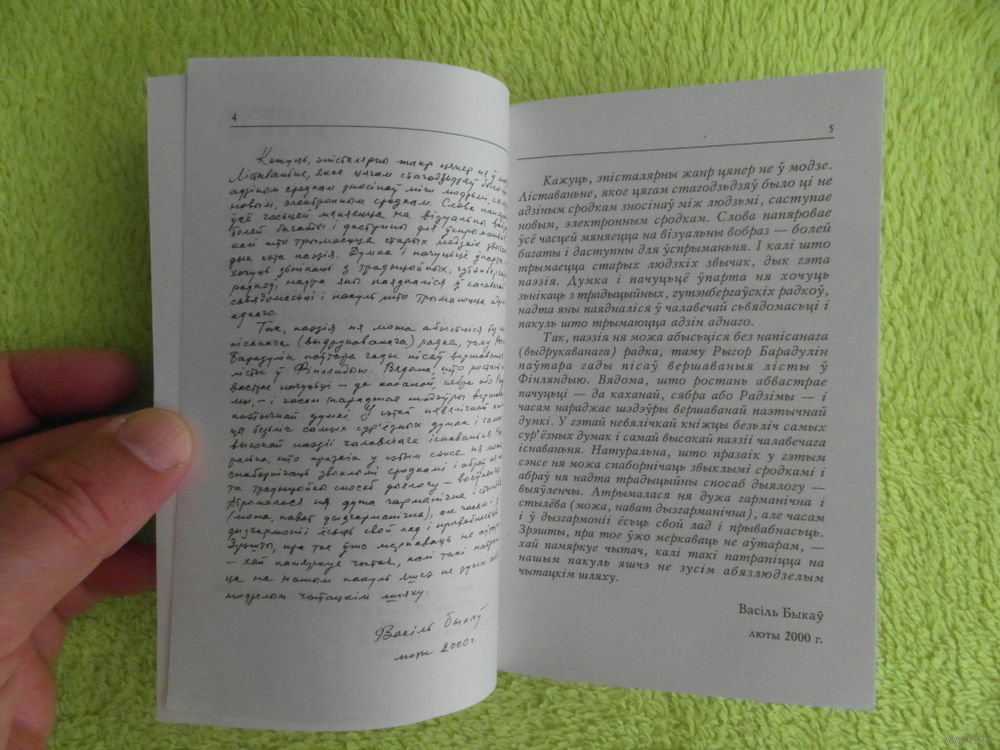 4
Кажуць, эпісталярны жанр цяпер ня ў
Ліставаньне, якое цягам стагодзьдзяў было
адзіным сродкам зносінаў між людзьмі,
новым, электронным сродкам. Слова
ўсё часьцей мяняецца на візуальны
болей багаты і даступны для ўспрыманьня
калі што трымаецца старых людзкіх
дык гэта паэзія. Думка і пачуцьцё ўпарта
хочуць зьнікаць з традыцыйных,
радкоў, надта яны паядналіся ў
сьвядомасьці і пакуль што трымаюцца
аднаго.
Так, паэзія ня можа абысьціся без
пісанага (выдрукаванага) радка, таму
Барадулін паўтара гады пісаў вершаваныя
лісты ў Фінляндыю. Вядома, што ростань
вастрае пачуцьці — да каханай, сябра або
мы, — і часам нараджае шэдэўры
паэтычнай думкі. У гэтай невялічкай
ца безьліч самых сур'ёзных думак і самай
высокай паэзіі чалавечага існаваньня.
што празаік у гэтым сэнсе ня можа
спаборнічаць звыклымі сродкамі і абраў ня
та традыцыйны спосаб дыялогу —
Атрымалася ня дужа гарманічна і
(можа, нават дызгарманічна), але часам і ў
дызгармоніі ёсьць свой лад і прывабнасьць.
Зрэшты, пра тое ўжо меркаваць не
— хай памяркуе чытач, калі такі
ца на нашым пакуль яшчэ не зусім
людзелым чытацкім шляху.
Васіль Быкаў
люты 2000 г.
5
Кажуць, эпісталярны жанр цяпер не ў модзе.
Ліставаньне, якое цягам стагодзьдзяў было ці не
адзіным сродкам зносінаў між людзьмі, саступае
новым, электронным сродкам. Слова папяровае
ўсё часцей мяняецца на візуальны вобраз — болей
багаты і даступны для ўспрыманьня. І калі што
трымаецца старых людзкіх звычак, дык гэта
паэзія. Думка і пачуцьцё ўпарта ня хочуць
зьнікаць з традыцыйных, гутэнбергаўскіх радкоў,
надта яны паядналіся ў чалавечай сьвядомасьці і
пакуль што трымаюцца адзін аднаго.
Так, паэзія ня можа абысьціся без напісанага
(выдрукаванага) радка, таму Рыгор Барадулін
паўтара гады пісаў вершаваныя лісты ў
Фінляндыю. Вядома, што ростань абвастрае
пачуцьці — да каханай, сябра або Радзімы — і
часам нараджае шэдэўры вершаванай паэтычнай
думкі. У гэтай невялічкай кніжцы безьліч самых
сур'ёзных думак і самай высокай паэзіі чалавечага
існаваньня. Натуральна, што празаік у гэтым
сэнсе ня можа спаборнічаць звыклымі сродкамі і
абраў ня надта традыцыйны спосаб дыялогу —
выяўленчы. Атрымалася ня дужа гарманічна і
стылёва (можа, нават дызгарманічна), але часам
і ў дызгармоніі ёсьць свой лад і прывабнасьць.
Зрэшты, пра тое ўжо меркаваць не аўтарам, —
хай памяркуе чытач, калі такі патрапіцца на
нашым пакуль яшчэ не зусім абязлюдзелым
чытацкім шляху.
Васіль Быкаў
люты 2000 г.